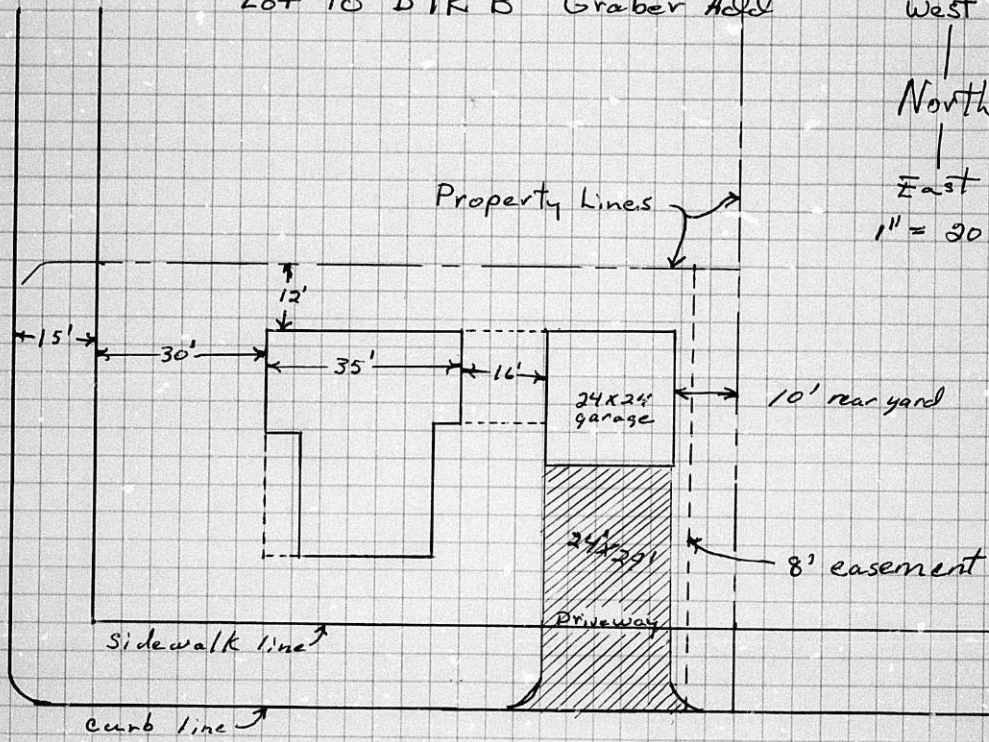 Lot 10 Blk B Graber Add
West
North
East
1" = 20
Property Lines
12'
15'
30'
35'
16'
24x24
garage
10' rear yard
8' easement
Driveway
Sidewalk line
Curb line